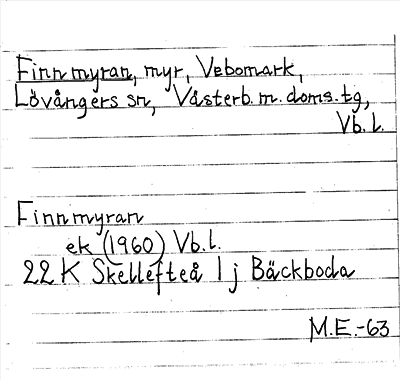 Finnmyran, myr, Vebomark,
Lövångers sn, Västerb. m. doms. tg,
Vb. l.
Finnmyran
ek (1960) Vb. l.
22 K Skellefteå 1 j Bäckboda
M.E.-63